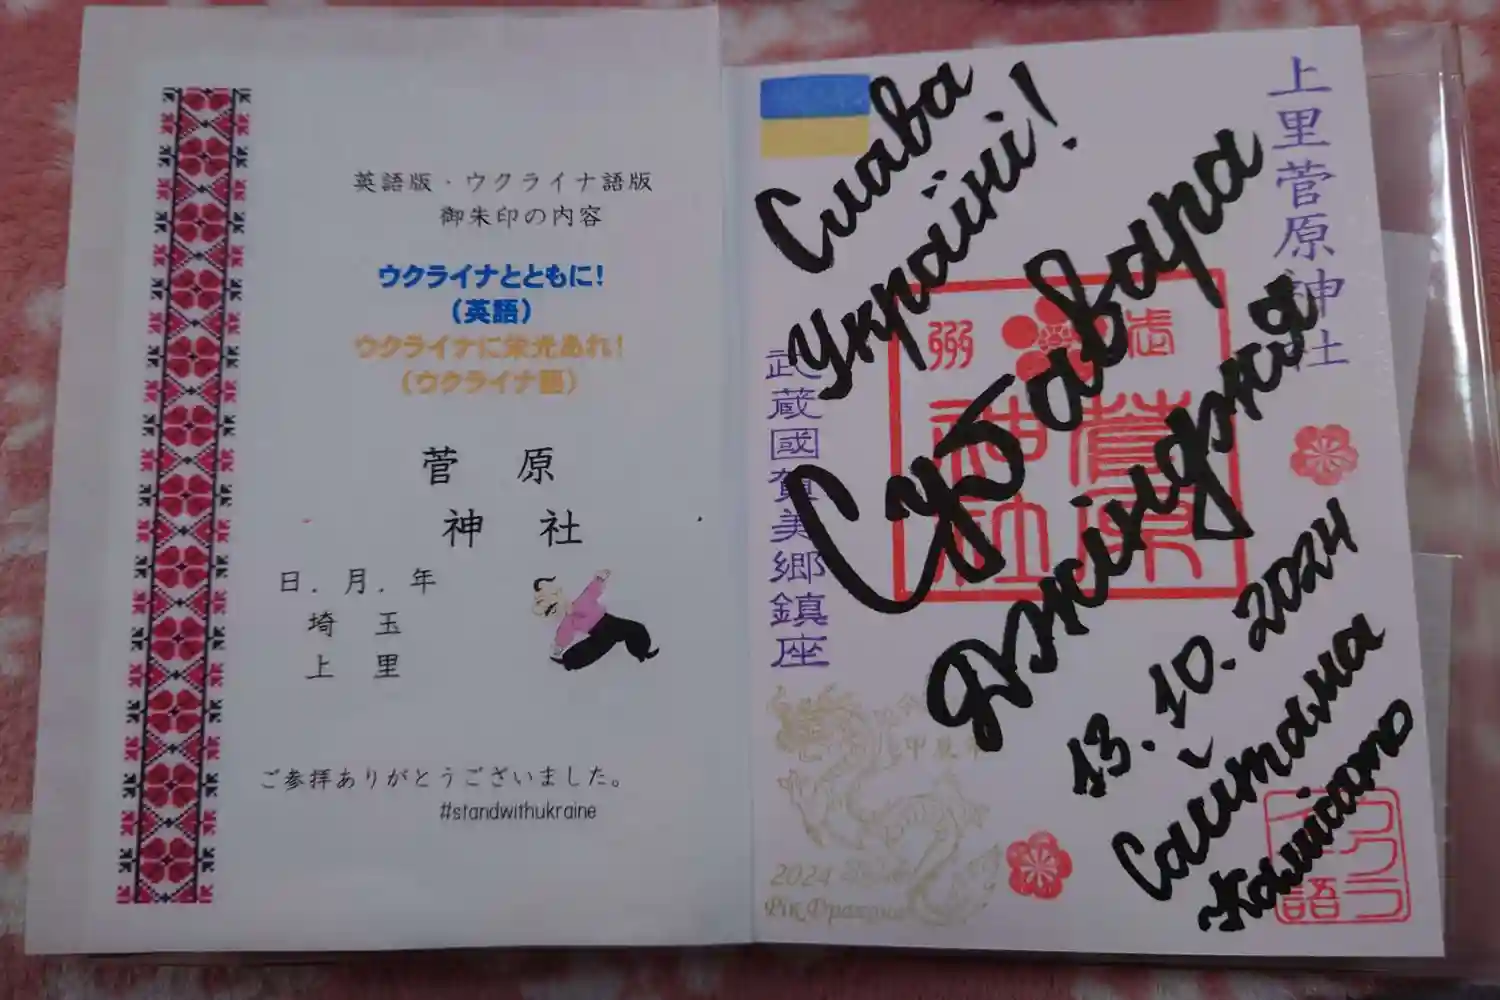 英語版・ウクライナ語版
御朱印の内容
ウクライナとともに!
(英語)
ウクライナに栄光あれ!
(ウクライナ語)
菅原
神社
日.月.年
埼玉
上里
ご参拝ありがとうございました。
#standwithukraine
上里菅原神社
Слава
Україні!
Суґавара
Джінджя
13.10.2024
Сайтама
Камісато
武蔵國賀美郷鎮座
菅原
神社
甲辰年
2024
Рік Дракона
ウクラ
語